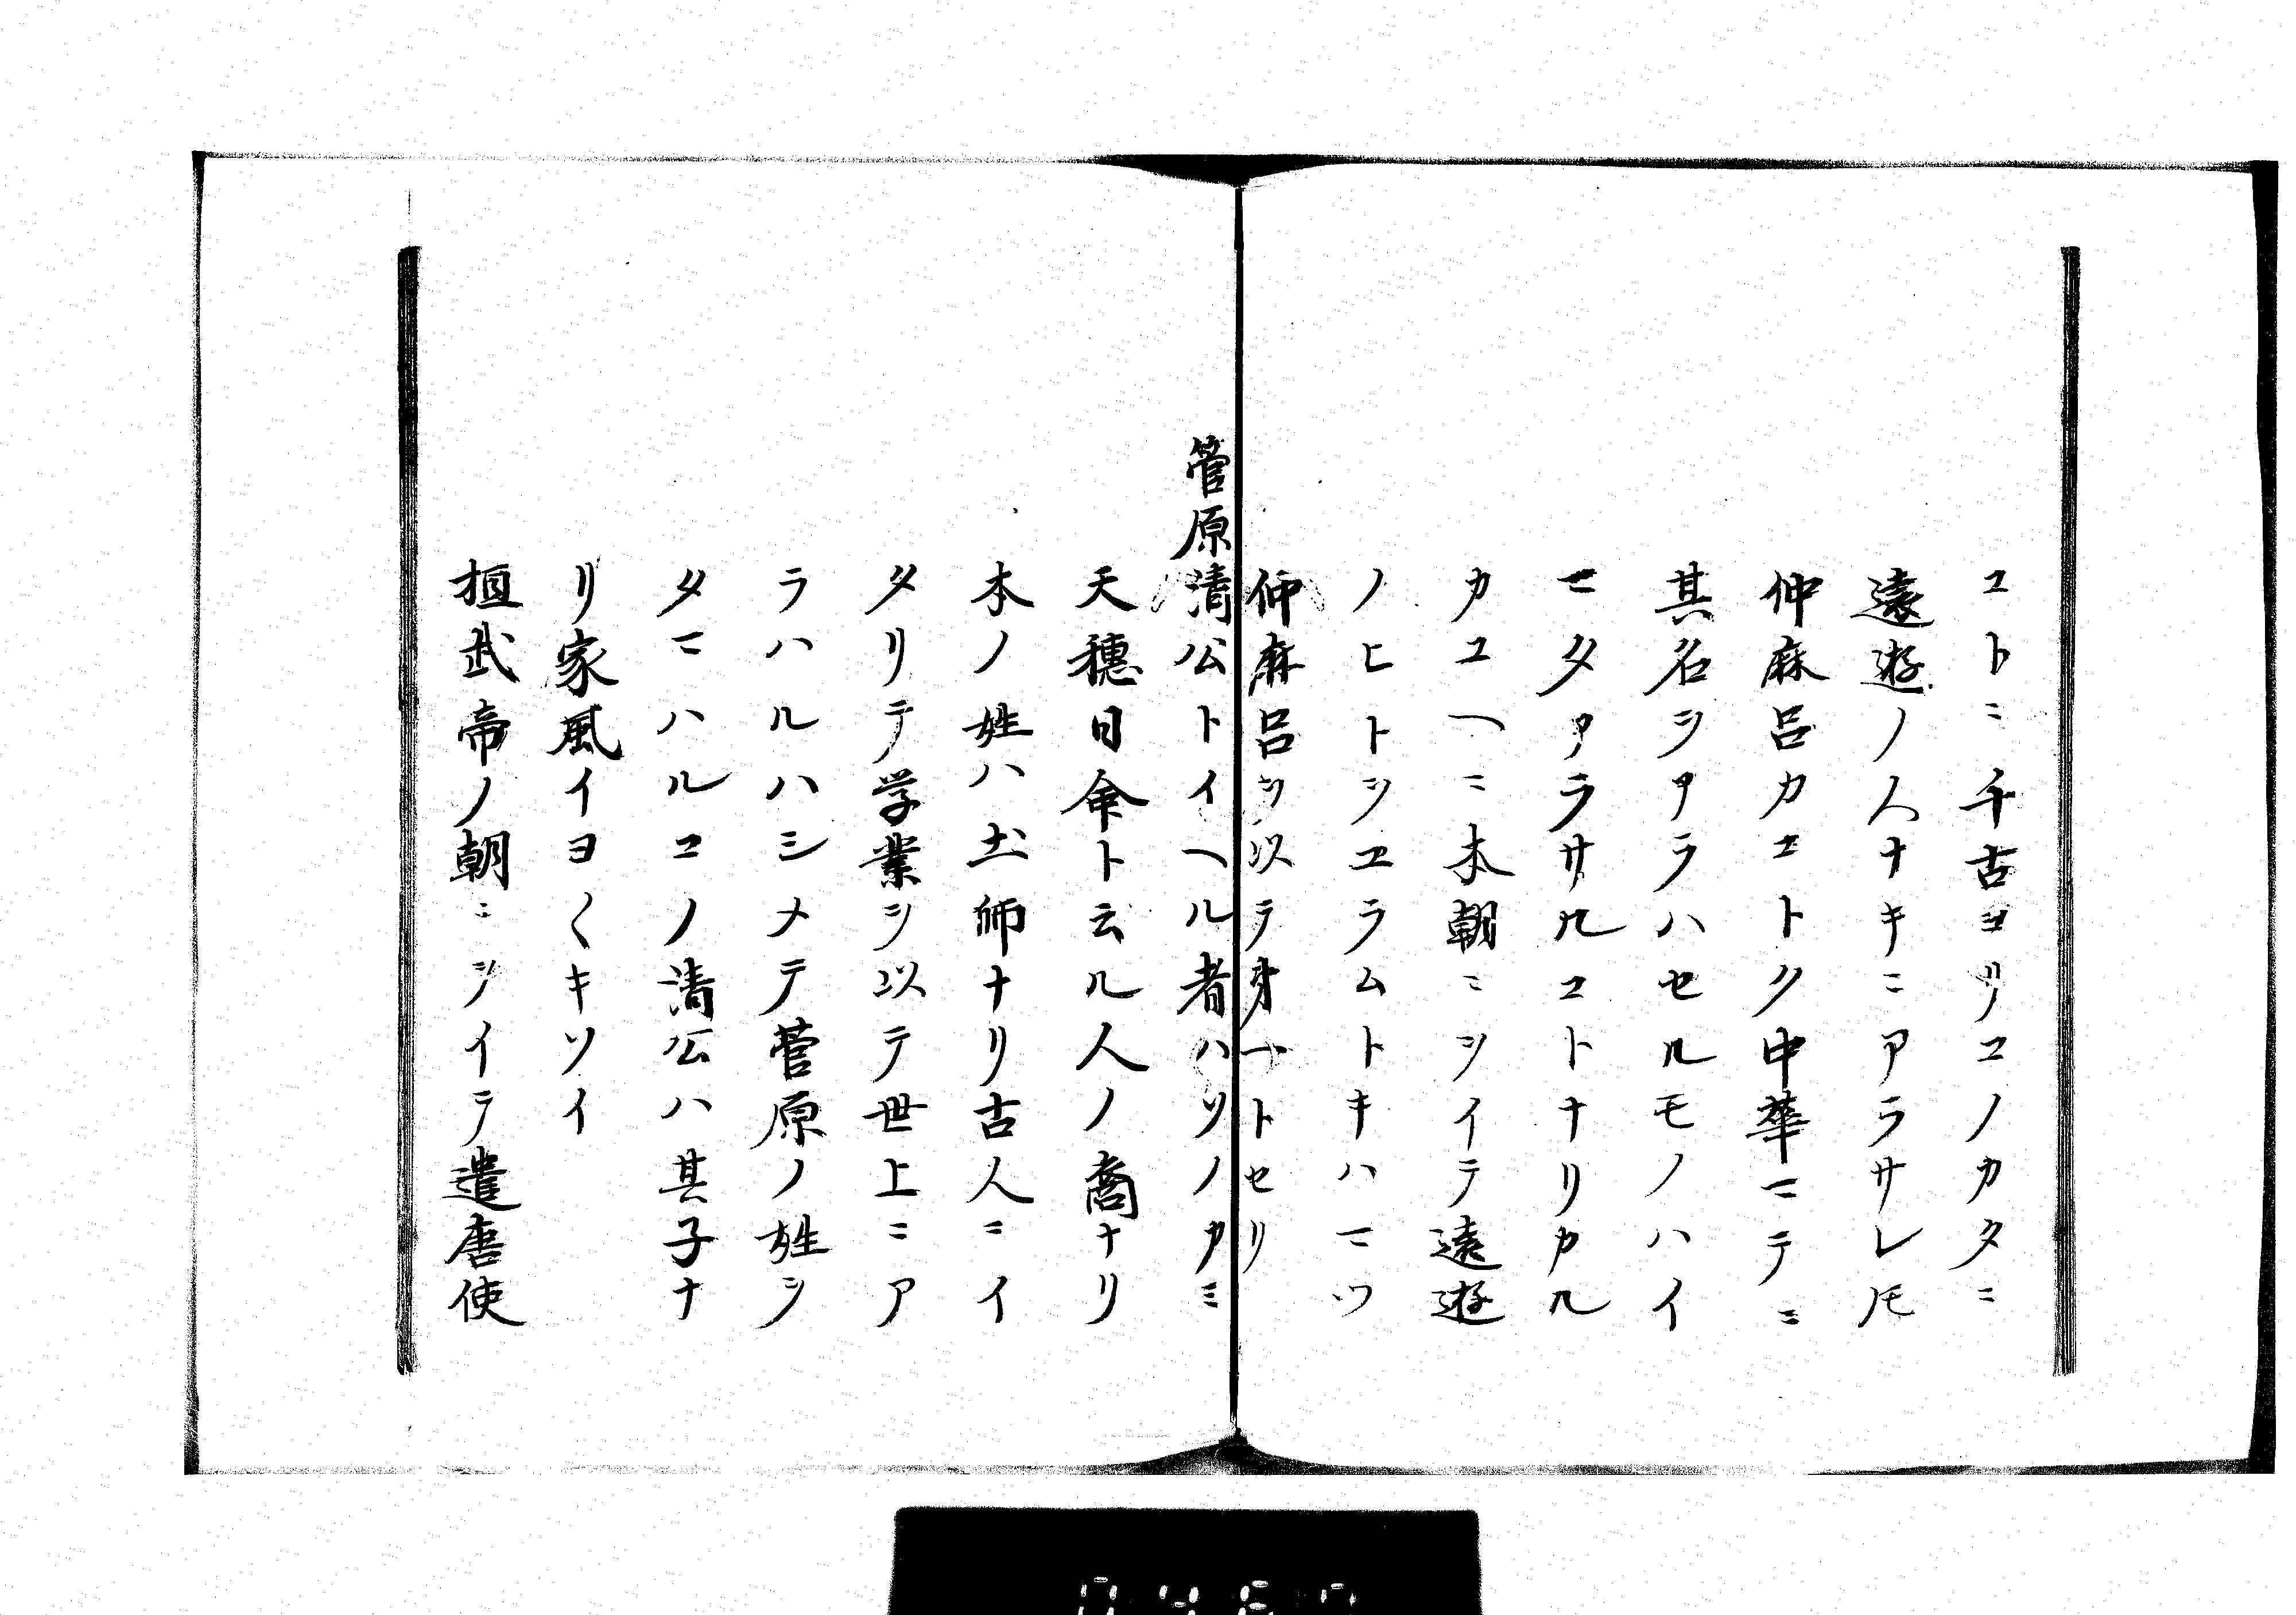 コトニ千古ヨリコノカタニ
遠遊ノ人ナキニアラサレ𪜈
仲麻呂カコトク中華ニテニ
其名ヲアラハセルモノハイ
マタアラサルコトナリカル
カユヘニ本朝ニヲイテ遠遊
ノヒトヲヱラムトキハマツ
仲麻呂ヲ以テ第一トセリ
菅原清公トイヘル者ハソノカミ
天穂日命ト云ル人ノ裔ナリ
本ノ姓ハ土師ナリ古人ニイ
タリテ学業ヲ以テ世上ニア
ラハルハシメテ菅原ノ姓ヲ
タマハルコノ清公ハ其子ナ
リ家風イヨ〱キソイ
桓武帝ノ朝ニヲイテ遣唐使